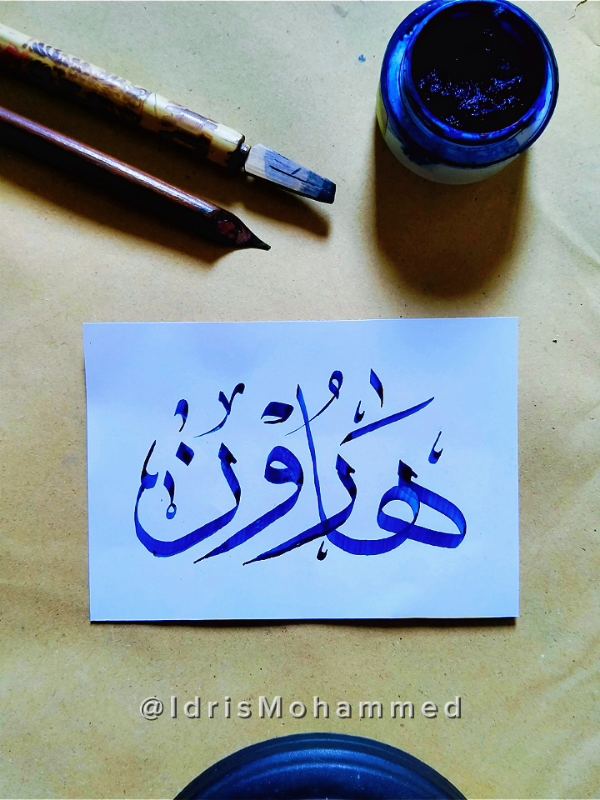 هَارُوْنُ
@IdrisMohammed